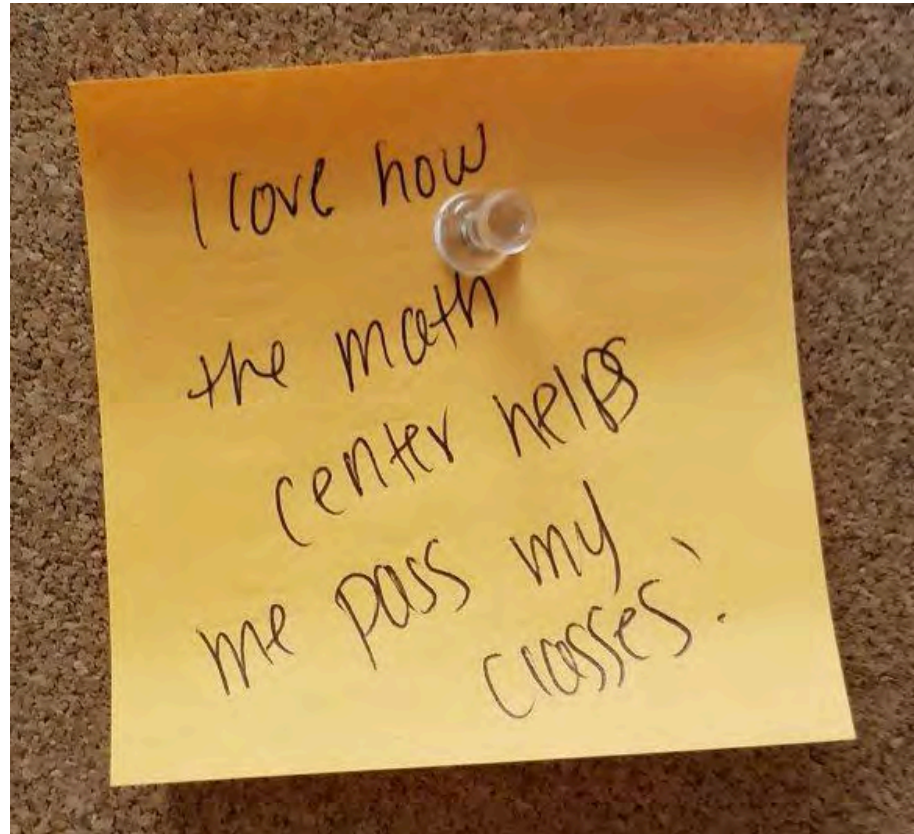 I love how
the math
center helps
me pass my
classes!